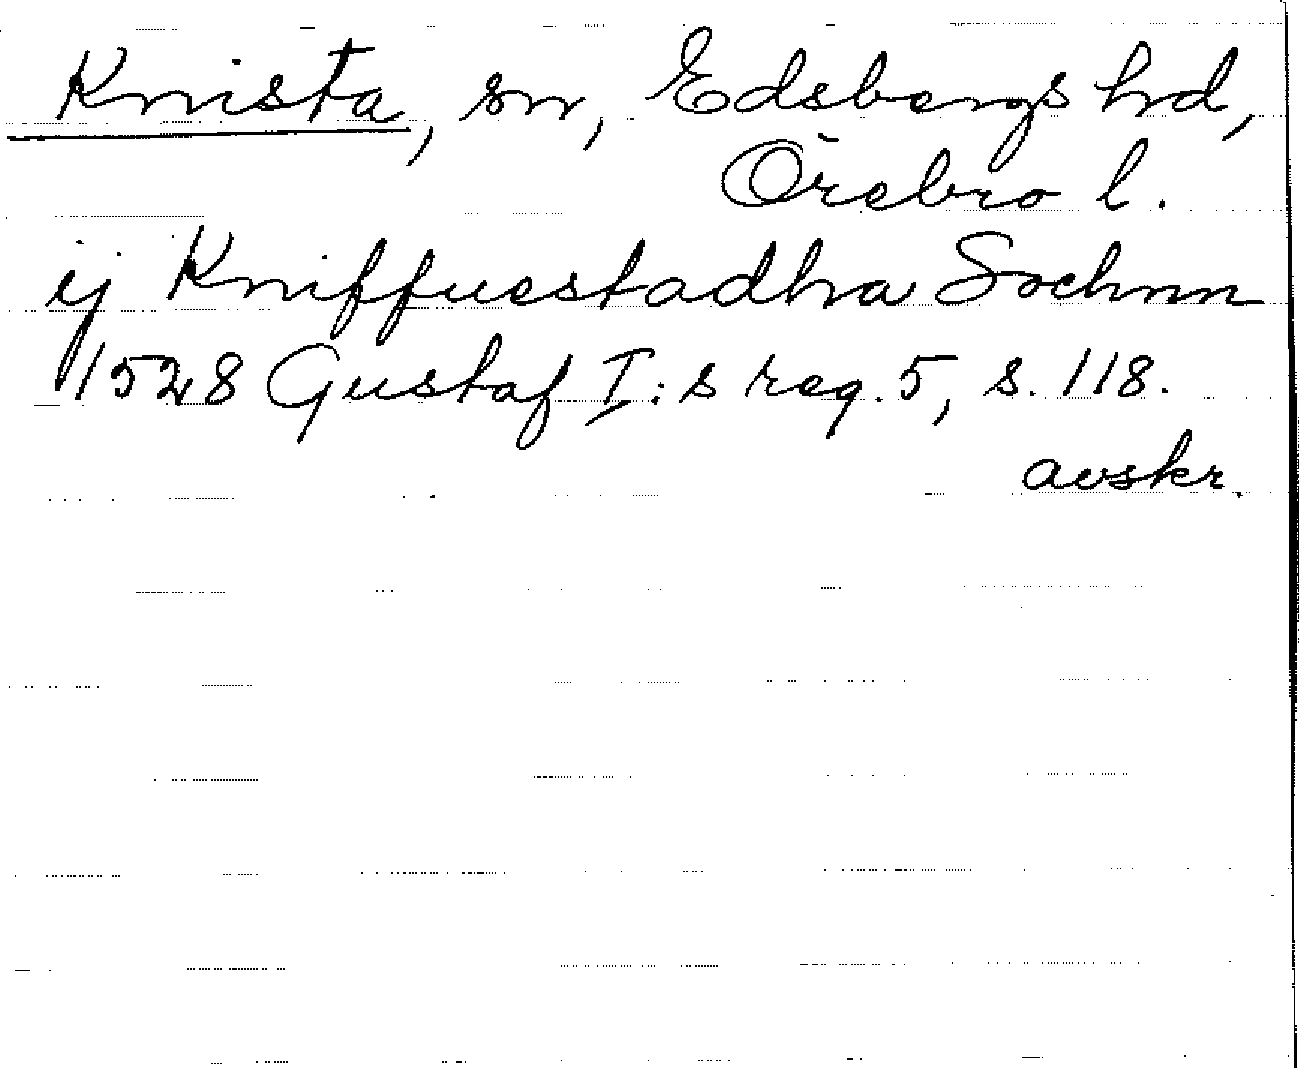 Knista, sn, Edsbergs hd,
Örebro l.
ij Kniffuestadha Sochnn
1528 Gustaf I:s reg. 5, s. 118.
avskr.